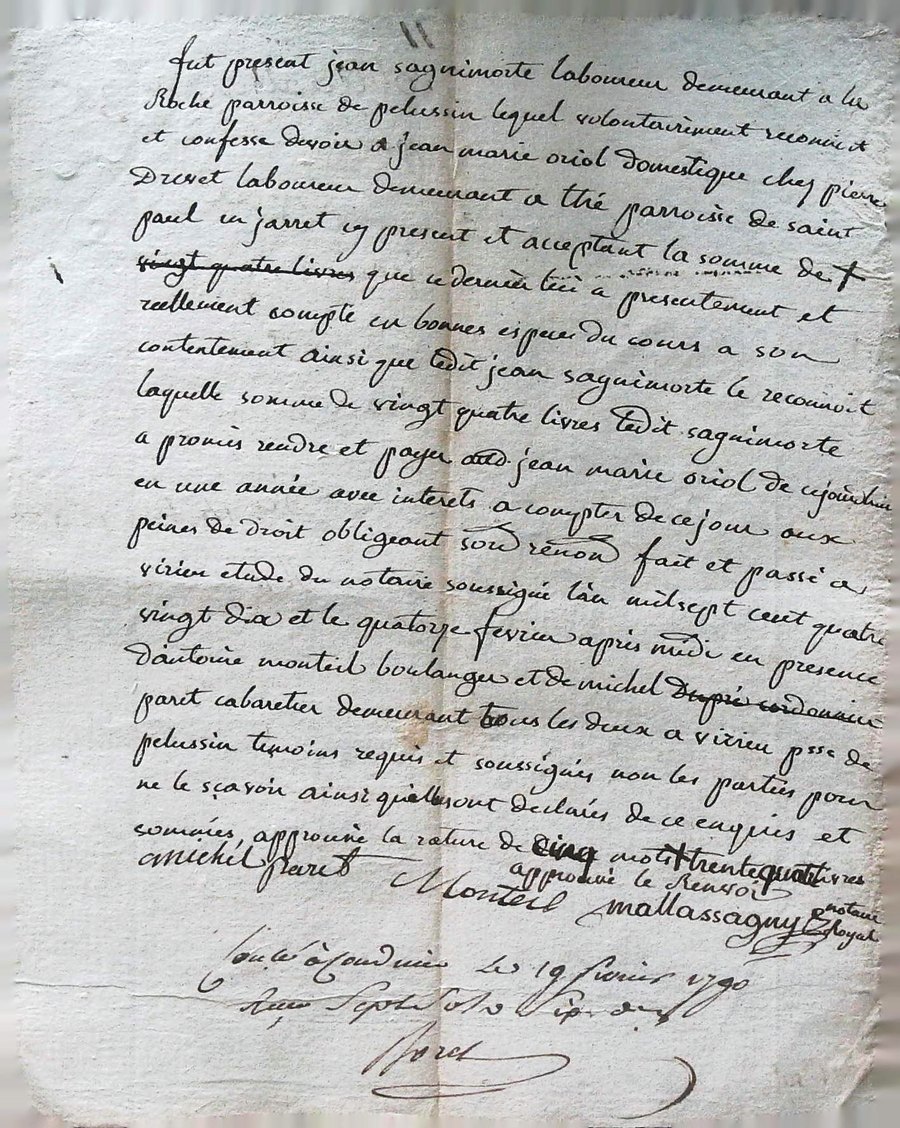 fut present jean sagnimorte laboureur demeurant a la
Roche parroisse de pelussin lequel volontairement reconnoit
et confesse devoir a jean marie oriol domestique chez pierre
Drevet laboureur demeurant a thé parroisse de saint
paul en jarret cy present et acceptant la somme de †
vingt quatre livres que ce dernier lui a presentement et
reellement compté en bonnes especes du cours a son
contentement ainsi que ledit jean sagnimorte le reconnoit
laquelle somme de vingt quatre livres ledit sagnimorte
a promis rendre et payer aud jean marie oriol de cejourdhui
en une année avec interets a compter de ce jour aux
peines de droit obligeant soud renond fait et passé a
virieu etude du notaire soussigné l'an mil sept cent quatre
vingt dix et le quatorze fevrier après midi en presence
d'antoine monteil boulanger et de michel Dupré cordonnier
paret cabaretier demeurant tous les deux a virieu psse de
pelussin temoins requis et soussignés non les parties pour
ne le sçavoir ainsi quelles ont declarés de ce enquis et
sommés, approuvé la rature de cinq mots † trente quatre livres
approuvé le Renvoi
michel paret Monteil mallassagny notaire
royal
le 19 fevrier 1790